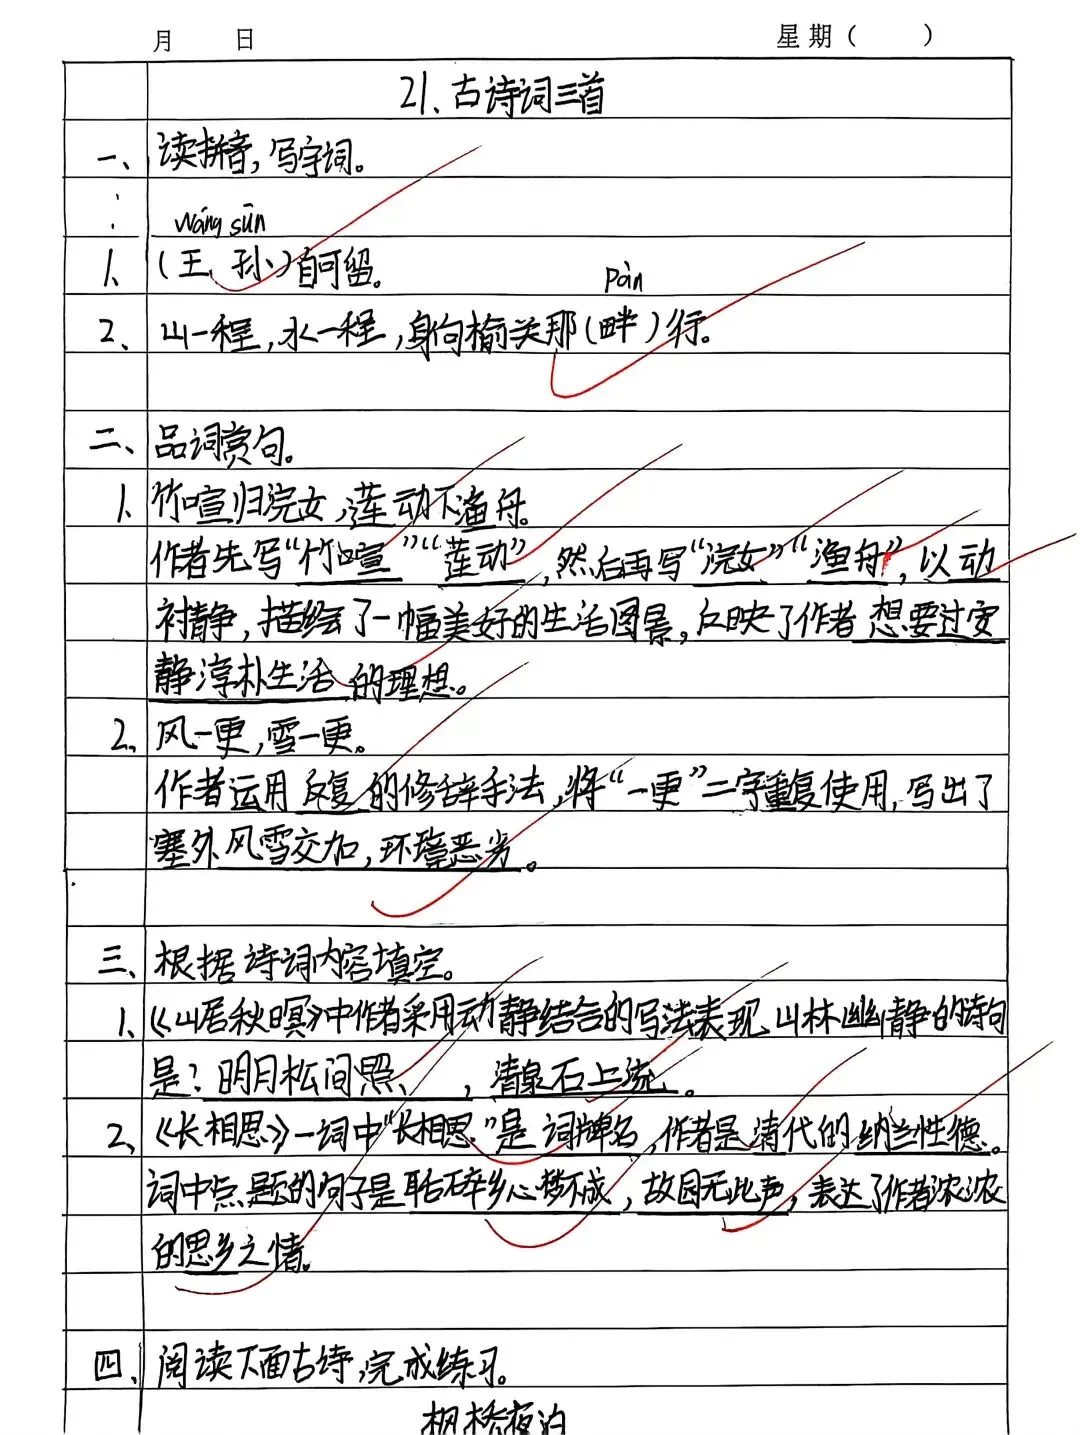 月 日 星期( )
21、古诗词三首
一、读拼音,写字词。
wáng sūn
1、(王 孙)自可留。
pàn
2、山一程,水一程,身向榆关那(畔)行。
二、品词赏句。
1、竹喧归浣女,莲动下渔舟。
作者先写“竹喧”“莲动”,然后再写“浣女”“渔舟”,以动
衬静,描绘了一幅美好的生活图景,反映了作者想要过安
静淳朴生活的理想。
2、风一更,雪一更。
作者运用反复的修辞手法,将“一更”二字重复使用,写出了
塞外风雪交加,环境恶劣。
三、根据诗词内容填空。
1、《山居秋暝》中作者采用动静结合的写法表现山林幽静的诗句
是?明月松间照、,清泉石上流。
2、《长相思》一词中“长相思”是词牌名,作者是清代的纳兰性德。
词中点题的句子是聒碎乡心梦不成,故园无此声,表达了作者浓浓
的思乡之情。
四、阅读下面古诗,完成练习。
枫桥夜泊